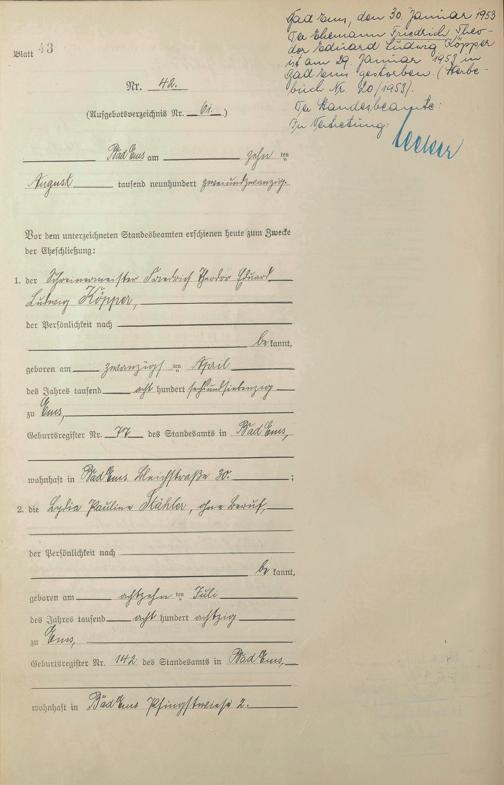 Bad Ems, den 30. Januar 1953
Der Ehemann Friedrich Theo-
dor Eduard Ludwig Köpper
ist am 29. Januar 1953 in
Bad Ems gestorben. (Sterbe-
buch Nr. 20/1953).
Der Standesbeamte:
In Vertretung:
Blatt 43
Nr. 42.
(Aufgebotsverzeichnis Nr. 61.)
Bad Ems am zehn ten
August tausend neunhundert zweiundzwanzig.
Vor dem unterzeichneten Standesbeamten erschienen heute zum Zwecke
der Eheschließung:
1. der Schreinermeister Friedrich Theodor Eduard
Ludwig Köpper,
der Persönlichkeit nach
be kannt,
geboren am zwanzigs ten April
des Jahres tausend acht hundert sechsundsiebenzig
zu Ems,
Geburtsregister Nr. 77 des Standesamts in Bad Ems,
wohnhaft in Bad Ems Bleichstraße 30. ;
2. die Lydia Pauline Stähler, ohne Beruf,
der Persönlichkeit nach
be kannt,
geboren am achtzehn ten Juli
des Jahres tausend acht hundert achtzig
zu Ems,
Geburtsregister Nr. 142 des Standesamts in Bad Ems,
wohnhaft in Bad Ems Pfingstwiese 2.